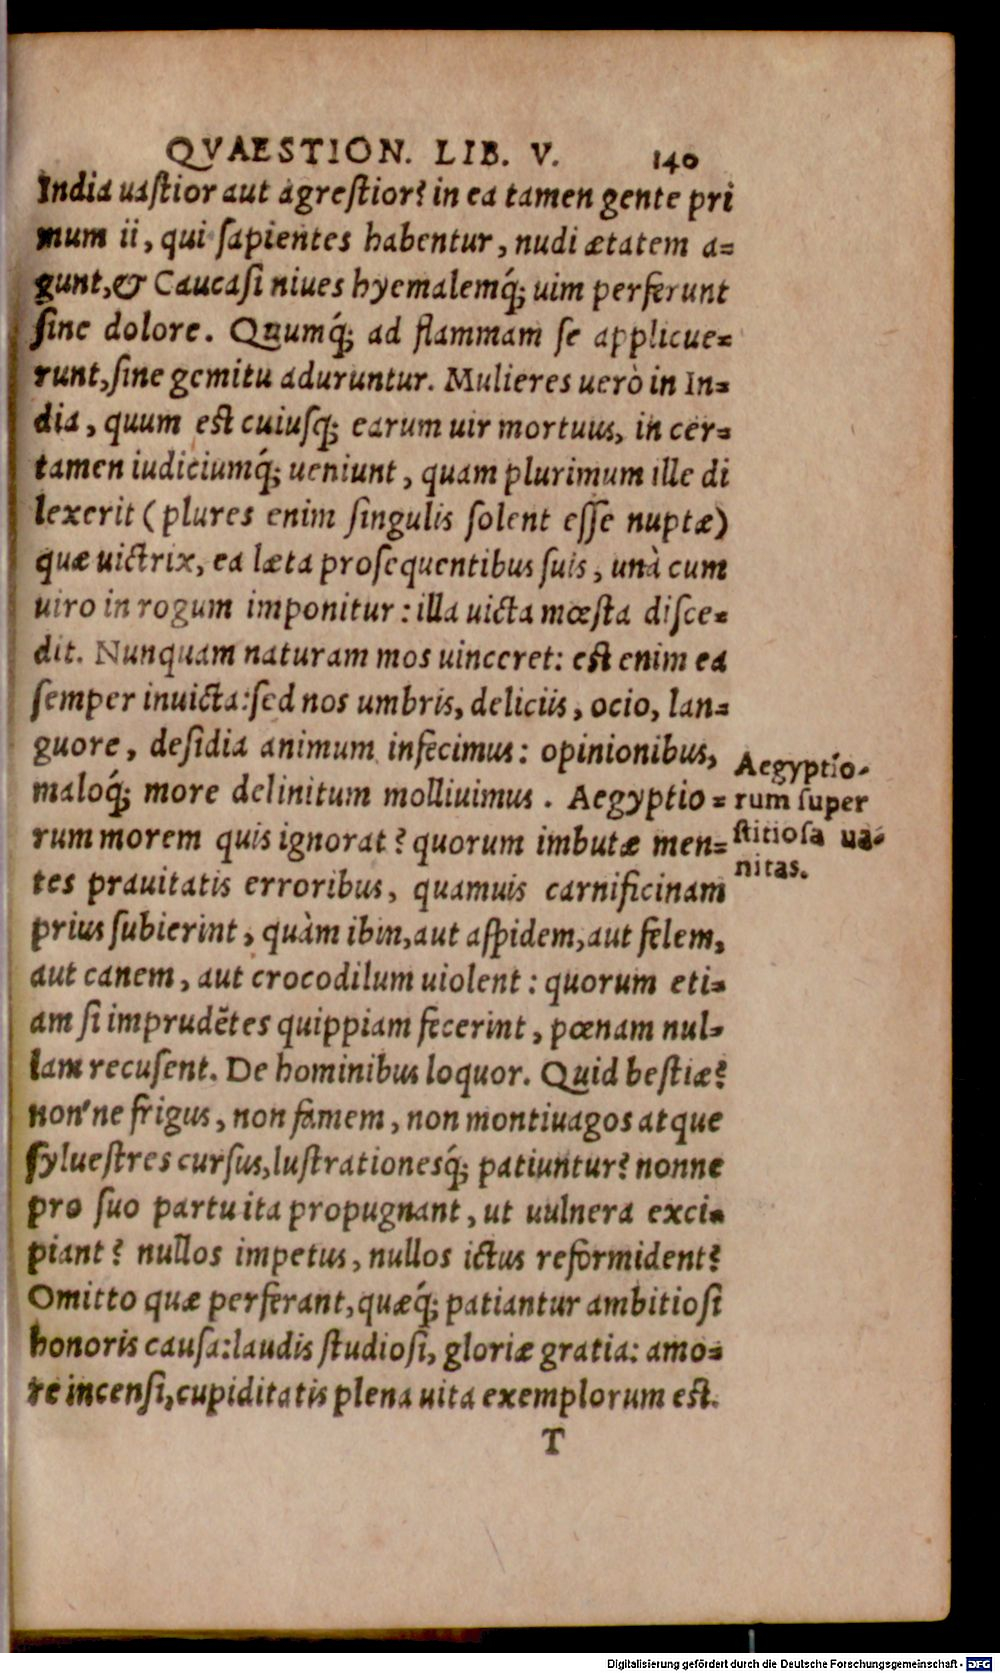 QVAESTION. LIB. V. 140
India uaſtior aut agreſtior? in ea tamen gente pri
mum ii, qui ſapientes habentur, nudi ætatem a=
gunt, & Caucaſi niues hyemalemq́; uim perferunt
ſine dolore. Quumq́; ad flammam ſe applicue=
runt, ſine gemitu aduruntur. Mulieres uerò in In=
dia, quum eſt cuiuſq; earum uir mortuus, in cer=
tamen iudiciumq́; ueniunt, quam plurimum ille di
lexerit (plures enim ſingulis ſolent eſſe nuptæ)
quæ uictrix, ea læta proſequentibus ſuis, unà cum
uiro in rogum imponitur: illa uicta mœſta diſce=
dit. Nunquam naturam mos uinceret: eſt enim ea
ſemper inuicta: ſed nos umbris, deliciis, ocio, lan=
guore, deſidia animum infecimus: opinionibus,
maloq́; more delinitum molliuimus. Aegyptio=
rum morem quis ignorat? quorum imbutæ men=
tes prauitatis erroribus, quamuis carnificinam
prius ſubierint, quàm ibin, aut aſpidem, aut felem,
aut canem, aut crocodilum uiolent: quorum eti=
am ſi imprudẽtes quippiam fecerint, pœnam nul=
lam recuſent. De hominibus loquor. Quid beſtiæ?
non'ne frigus, non famem, non montiuagos atque
ſylueſtres curſus, luſtrationesq́; patiuntur? nonne
pro ſuo partu ita propugnant, ut uulnera exci=
piant? nullos impetus, nullos ictus reformident?
Omitto quæ perferant, quæq́; patiantur ambitioſi
honoris cauſa: laudis ſtudioſi, gloriæ gratia: amo=
re incenſi, cupiditatis plena uita exemplorum eſt.
T
Aegyptio-
rum ſuper
ſtitioſa ua-
nitas.
Digitalisierung gefördert durch die Deutsche Forschungsgemeinschaft - DFG